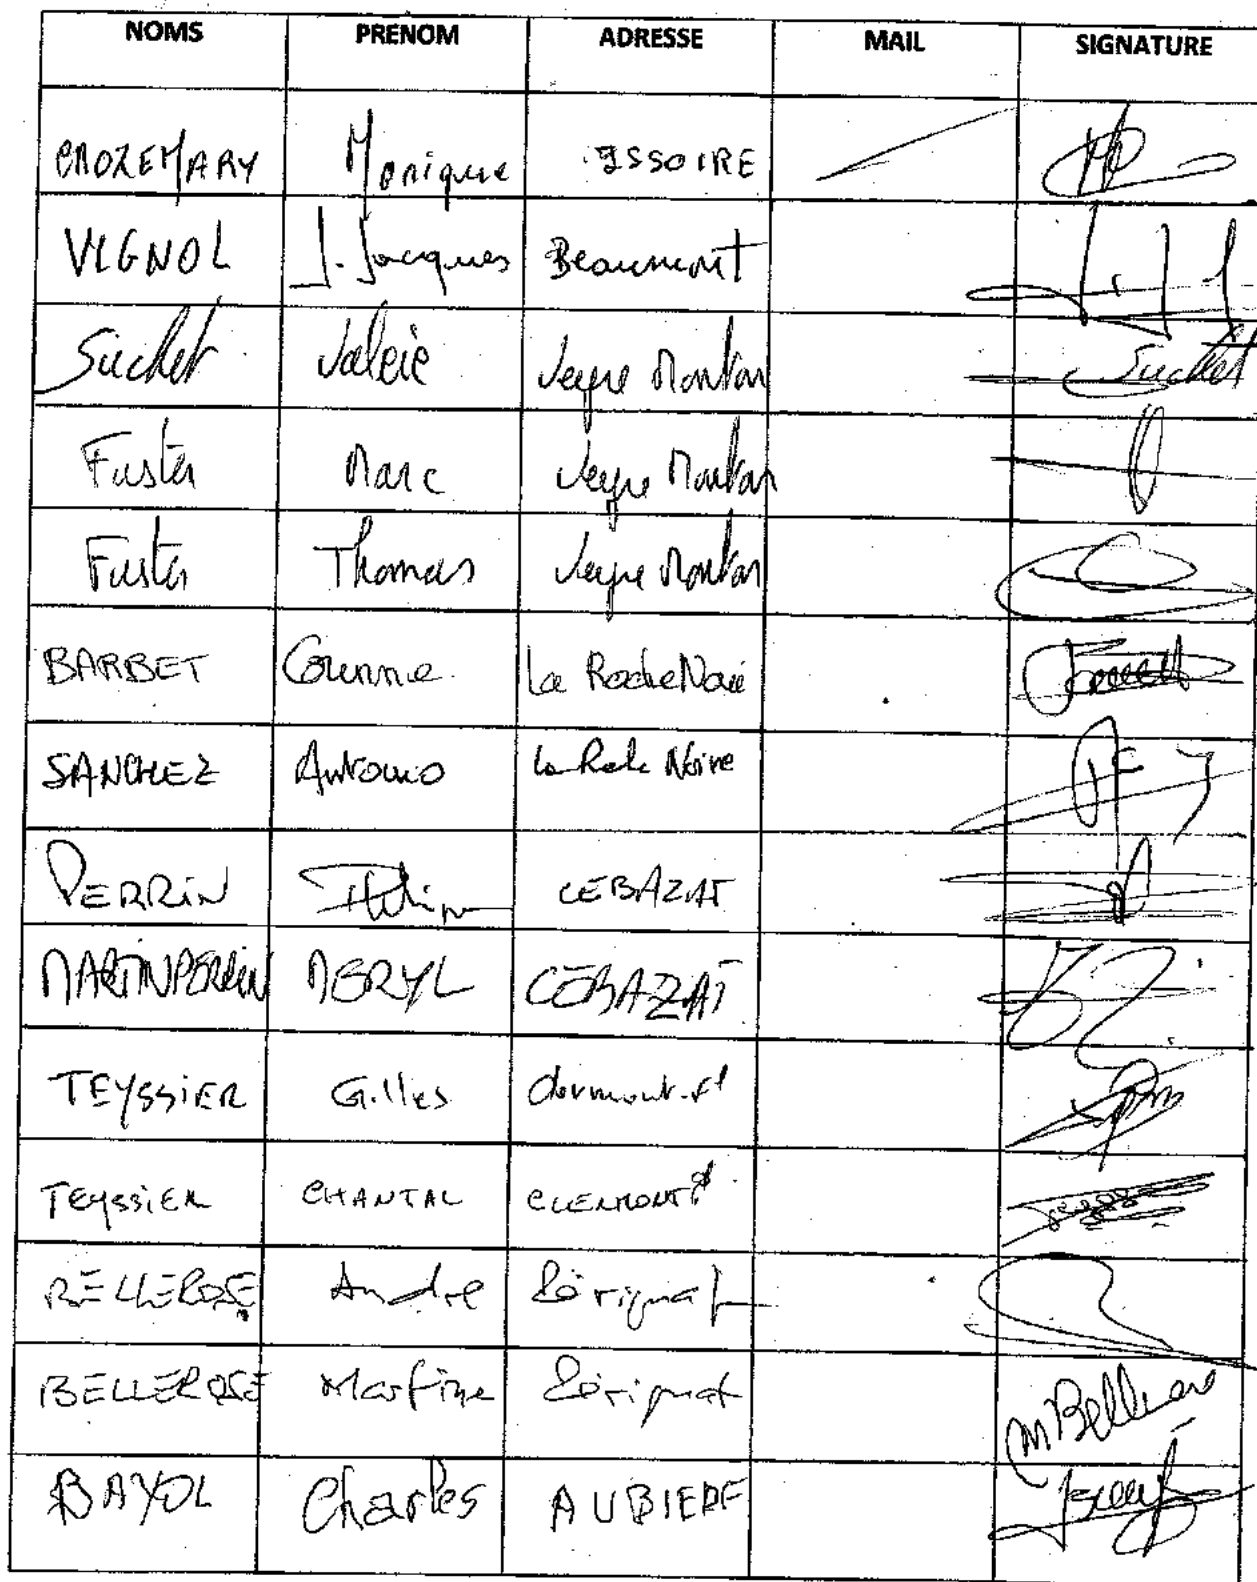 NOMS PRENOM ADRESSE MAIL SIGNATURE
CROZEMARY Monique ISSOIRE
VIGNOL J. Jacques Beaumont
Suchet Valérie Veyre Monton Suchet
Fuster Marc Veyre Monton
Fuster Thomas Veyre Monton
BARBET Corinne La Roche Noire
SANCHEZ Antonio La Roche Noire
PERRIN CEBAZAT
MARTINPERRIN MERYL CEBAZAT
TEYSSIER Gilles Clermont-Fd
Teyssier CHANTAL CLERMONT Fd
BELLEROSE André Lérignat
BELLEROSE Martine Lérignat M Bellerose
BAYOL Charles AUBIERE